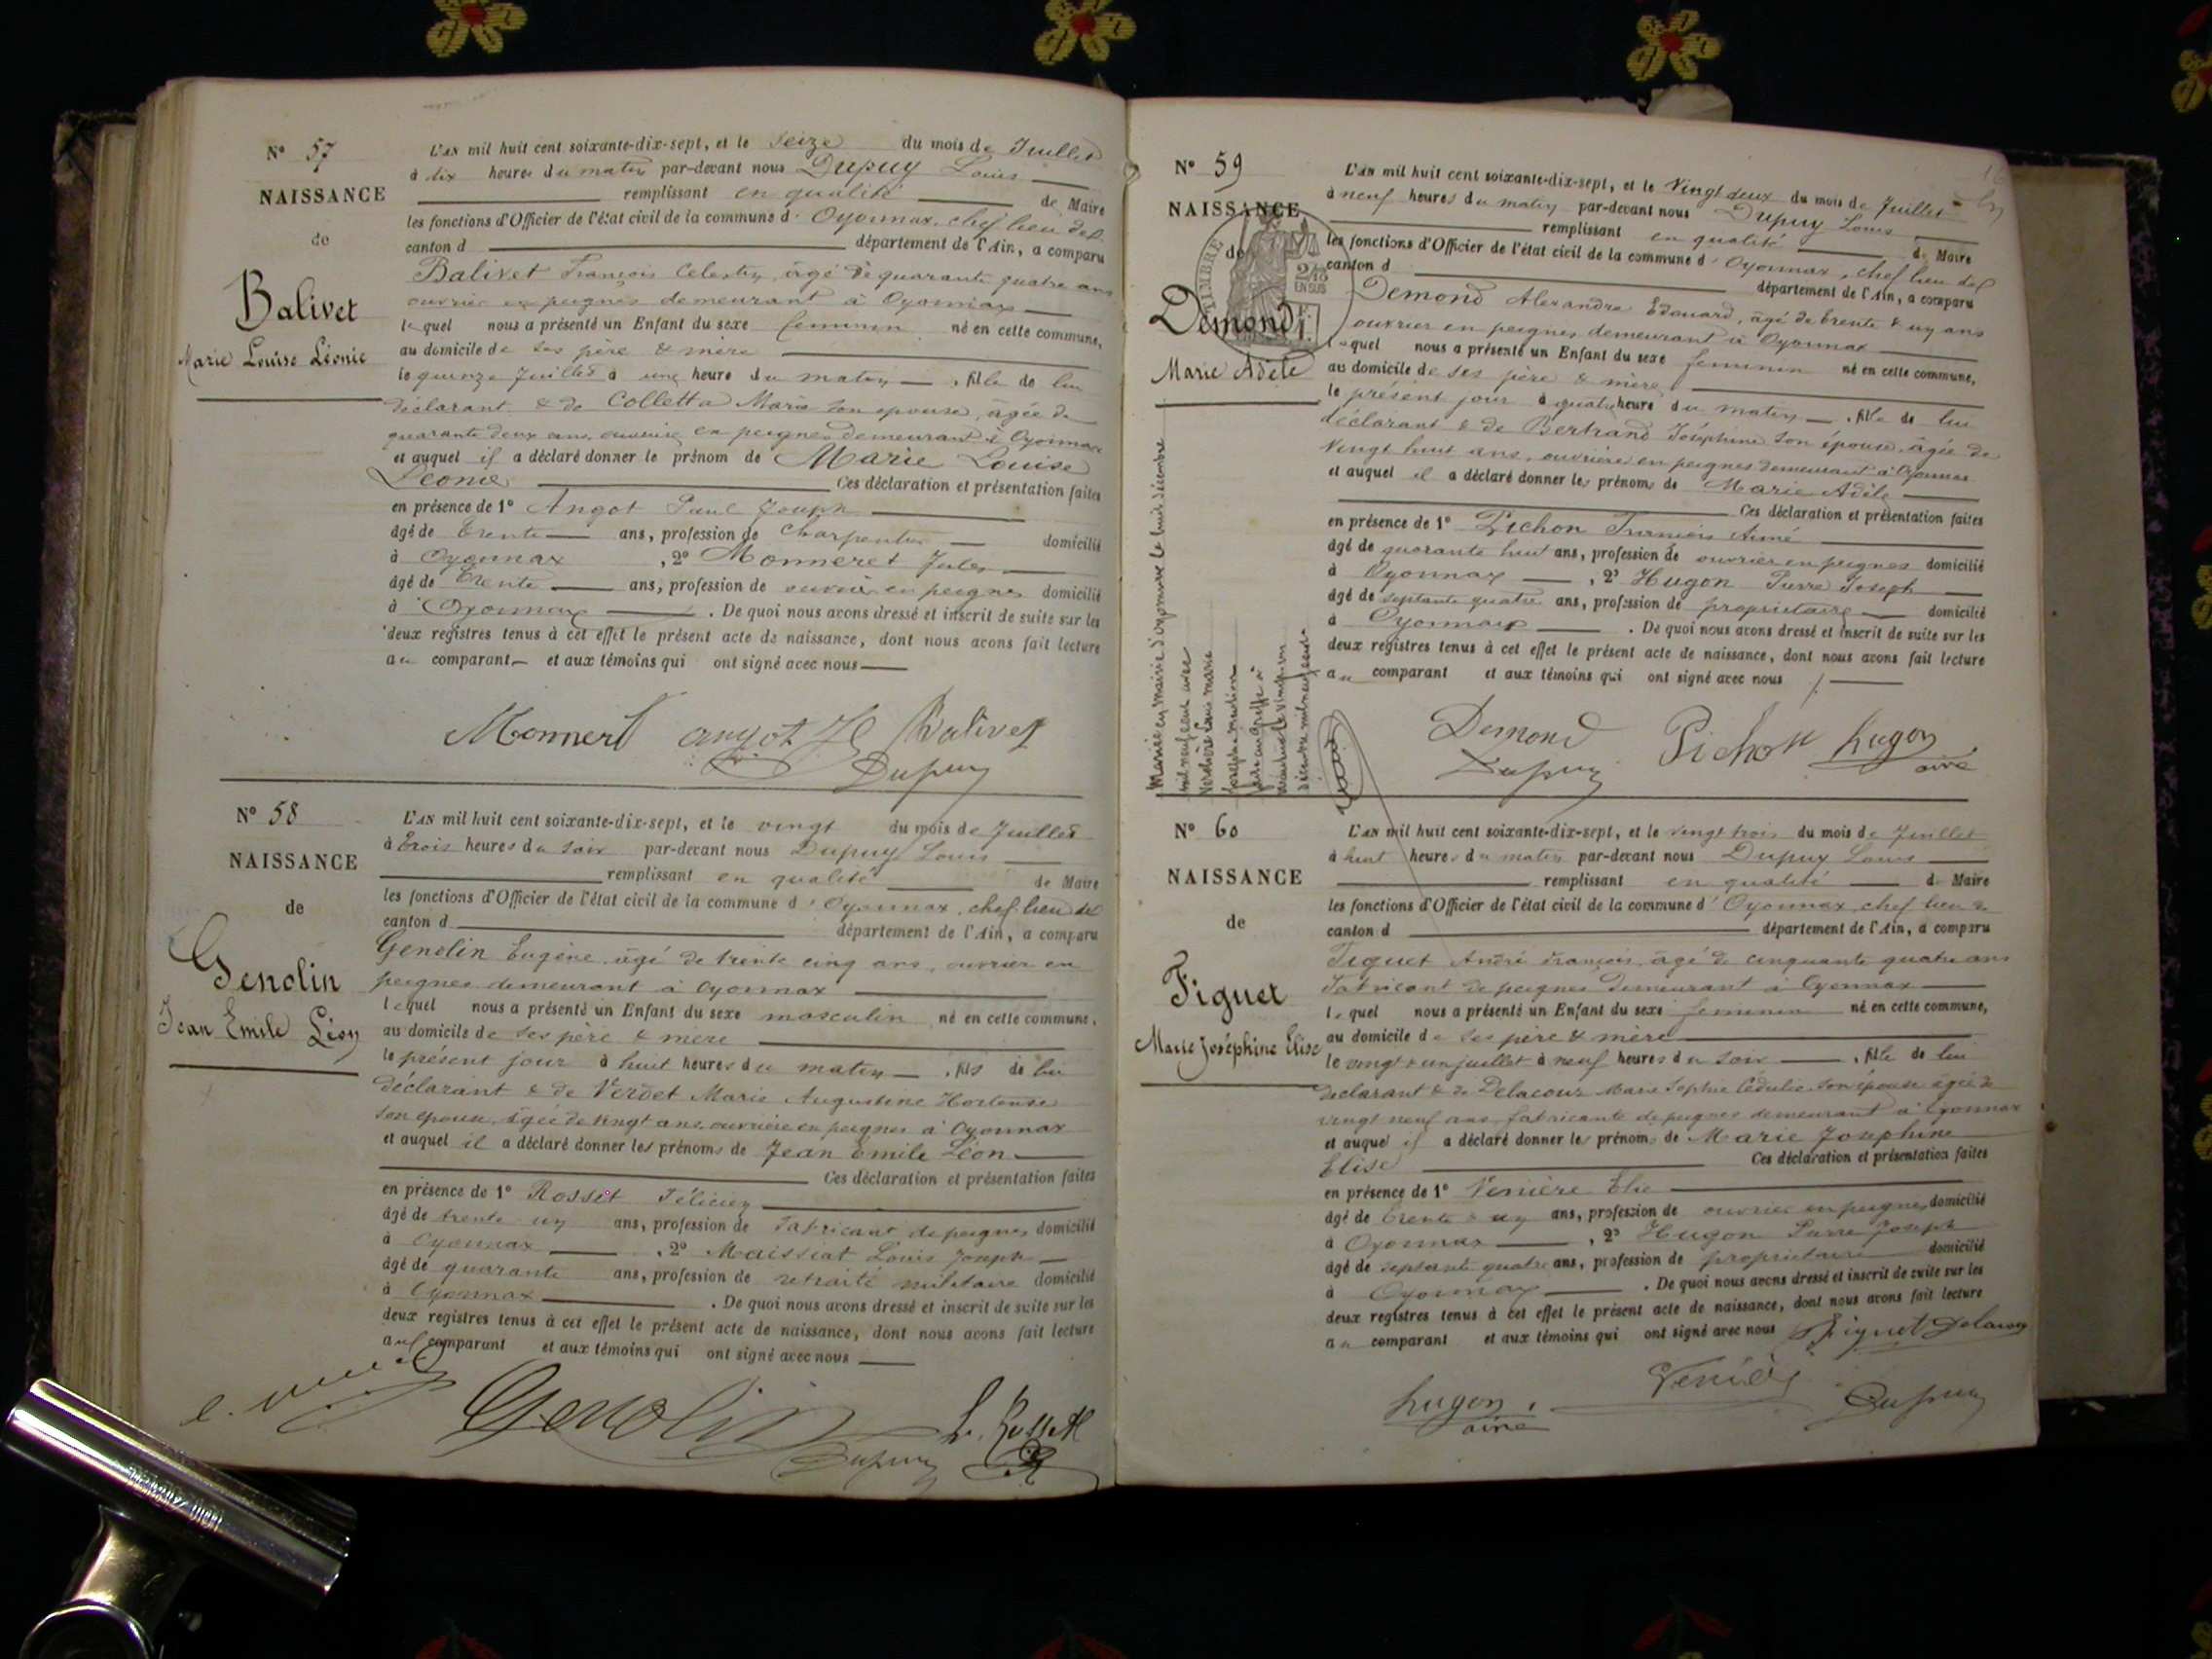 N° 57
NAISSANCE
de
Balivet
Marie Louise Léonie
L'AN mil huit cent soixante-dix-sept, et le seize du mois de Juillet
à dix heures du matin par-devant nous Dupuy Louis
remplissant en qualité de Maire
les fonctions d'Officier de l'état civil de la commune d' Oyonnax, chef lieu de
canton d département de l'Ain, a comparu
Balivet François Celestin, âgé de quarante quatre ans
ouvrier en peignes demeurant à Oyonnax
lequel nous a présenté un Enfant du sexe feminin né en cette commune,
au domicile de ses père & mère
le quinze Juillet à une heure du matin, fille de lui
déclarant & de Colletta Marie son epouse, âgée de
quarante deux ans, ouvrière en peignes demeurant à Oyonnax
et auquel il a déclaré donner le prénom de Marie Louise
Leonie Ces déclaration et présentation faites
en présence de 1° Angot Paul Joseph
âgé de trente ans, profession de charpentier domicilié
à Oyonnax, 2° Monneret Jules
âgé de trente ans, profession de ouvrier en peignes domicilié
à Oyonnax. De quoi nous avons dressé et inscrit de suite sur les
deux registres tenus à cet effet le présent acte de naissance, dont nous avons fait lecture
au comparant et aux témoins qui ont signé avec nous
Monneret angot Balivet
Dupuy
N° 58
NAISSANCE
de
Genolin
Jean Emile Léon
L'AN mil huit cent soixante-dix-sept, et le vingt du mois de Juillet
à trois heures du soir par-devant nous Dupuy Louis
remplissant en qualité de Maire
les fonctions d'Officier de l'état civil de la commune d' Oyonnax, chef lieu de
canton d département de l'Ain, a comparu
Genolin Eugène, âgé de trente cinq ans, ouvrier en
peignes demeurant à Oyonnax
lequel nous a présenté un Enfant du sexe masculin né en cette commune,
au domicile de ses père & mère
le présent jour à huit heures du matin, fils de lui
déclarant & de Verdet Marie Augustine Hortense
son epouse, âgée de vingt ans, ouvrière en peignes à Oyonnax
et auquel il a déclaré donner les prénoms de Jean Emile Léon
Ces déclaration et présentation faites
en présence de 1° Rosset Félicien
âgé de trente un ans, profession de fabricant de peignes domicilié
à Oyonnax, 2° Maissiat Louis Joseph
âgé de quarante ans, profession de retraité militaire domicilié
à Oyonnax. De quoi nous avons dressé et inscrit de suite sur les
deux registres tenus à cet effet le présent acte de naissance, dont nous avons fait lecture
au comparant et aux témoins qui ont signé avec nous
Genolin Rosset
Dupuy
N° 59
NAISSANCE
de
TIMBRE
2/10
EN SUS
Demond
Marie Adèle
L'AN mil huit cent soixante-dix-sept, et le vingt deux du mois de Juillet
à neuf heures du matin par-devant nous Dupuy Louis
remplissant en qualité de Maire
les fonctions d'Officier de l'état civil de la commune d' Oyonnax, chef lieu de
canton d département de l'Ain, a comparu
Demond Alexandre Edouard, âgé de trente & un ans
ouvrier en peignes demeurant à Oyonnax
lequel nous a présenté un Enfant du sexe feminin né en cette commune,
au domicile de ses père & mère
le présent jour à quatre heures du matin, fille de lui
déclarant & de Bertrand Joséphine son épouse, âgée de
vingt huit ans, ouvrière en peignes demeurant à Oyonnax
et auquel il a déclaré donner les prénoms de Marie Adèle
Ces déclaration et présentation faites
en présence de 1° Pichon Aimé
âgé de quarante huit ans, profession de ouvrier en peignes domicilié
à Oyonnax, 2° Hugon Pierre Joseph
âgé de septante quatre ans, profession de propriétaire domicilié
à Oyonnax. De quoi nous avons dressé et inscrit de suite sur les
deux registres tenus à cet effet le présent acte de naissance, dont nous avons fait lecture
au comparant et aux témoins qui ont signé avec nous
Demond Pichon hugon
Dupuy ainé
Mariée en mairie d'oyonnax le huit décembre
mil neuf cent
N° 60
NAISSANCE
de
Figuet
Marie Joséphine Elise
L'AN mil huit cent soixante-dix-sept, et le vingt trois du mois de Juillet
à huit heures du matin par-devant nous Dupuy Louis
remplissant en qualité de Maire
les fonctions d'Officier de l'état civil de la commune d' Oyonnax, chef lieu de
canton d département de l'Ain, a comparu
Figuet André François, âgé de cinquante quatre ans
fabricant de peignes demeurant à Oyonnax
lequel nous a présenté un Enfant du sexe feminin né en cette commune,
au domicile de ses père & mère
le vingt & un juillet à neuf heures du soir, fille de lui
declarant & de Delacour Marie Sophie son épouse âgée de
vingt neuf ans, fabricante de peignes demeurant à Oyonnax
et auquel il a déclaré donner les prénoms de Marie Josephine
Elise Ces déclaration et présentation faites
en présence de 1° Venière Elie
âgé de trente & un ans, profession de ouvrier en peignes domicilié
à Oyonnax, 2° Hugon Pierre Joseph
âgé de septante quatre ans, profession de propriétaire domicilié
à Oyonnax. De quoi nous avons dressé et inscrit de suite sur les
deux registres tenus à cet effet le présent acte de naissance, dont nous avons fait lecture
au comparant et aux témoins qui ont signé avec nous Figuet Delacour
hugon
ainé Dupuy